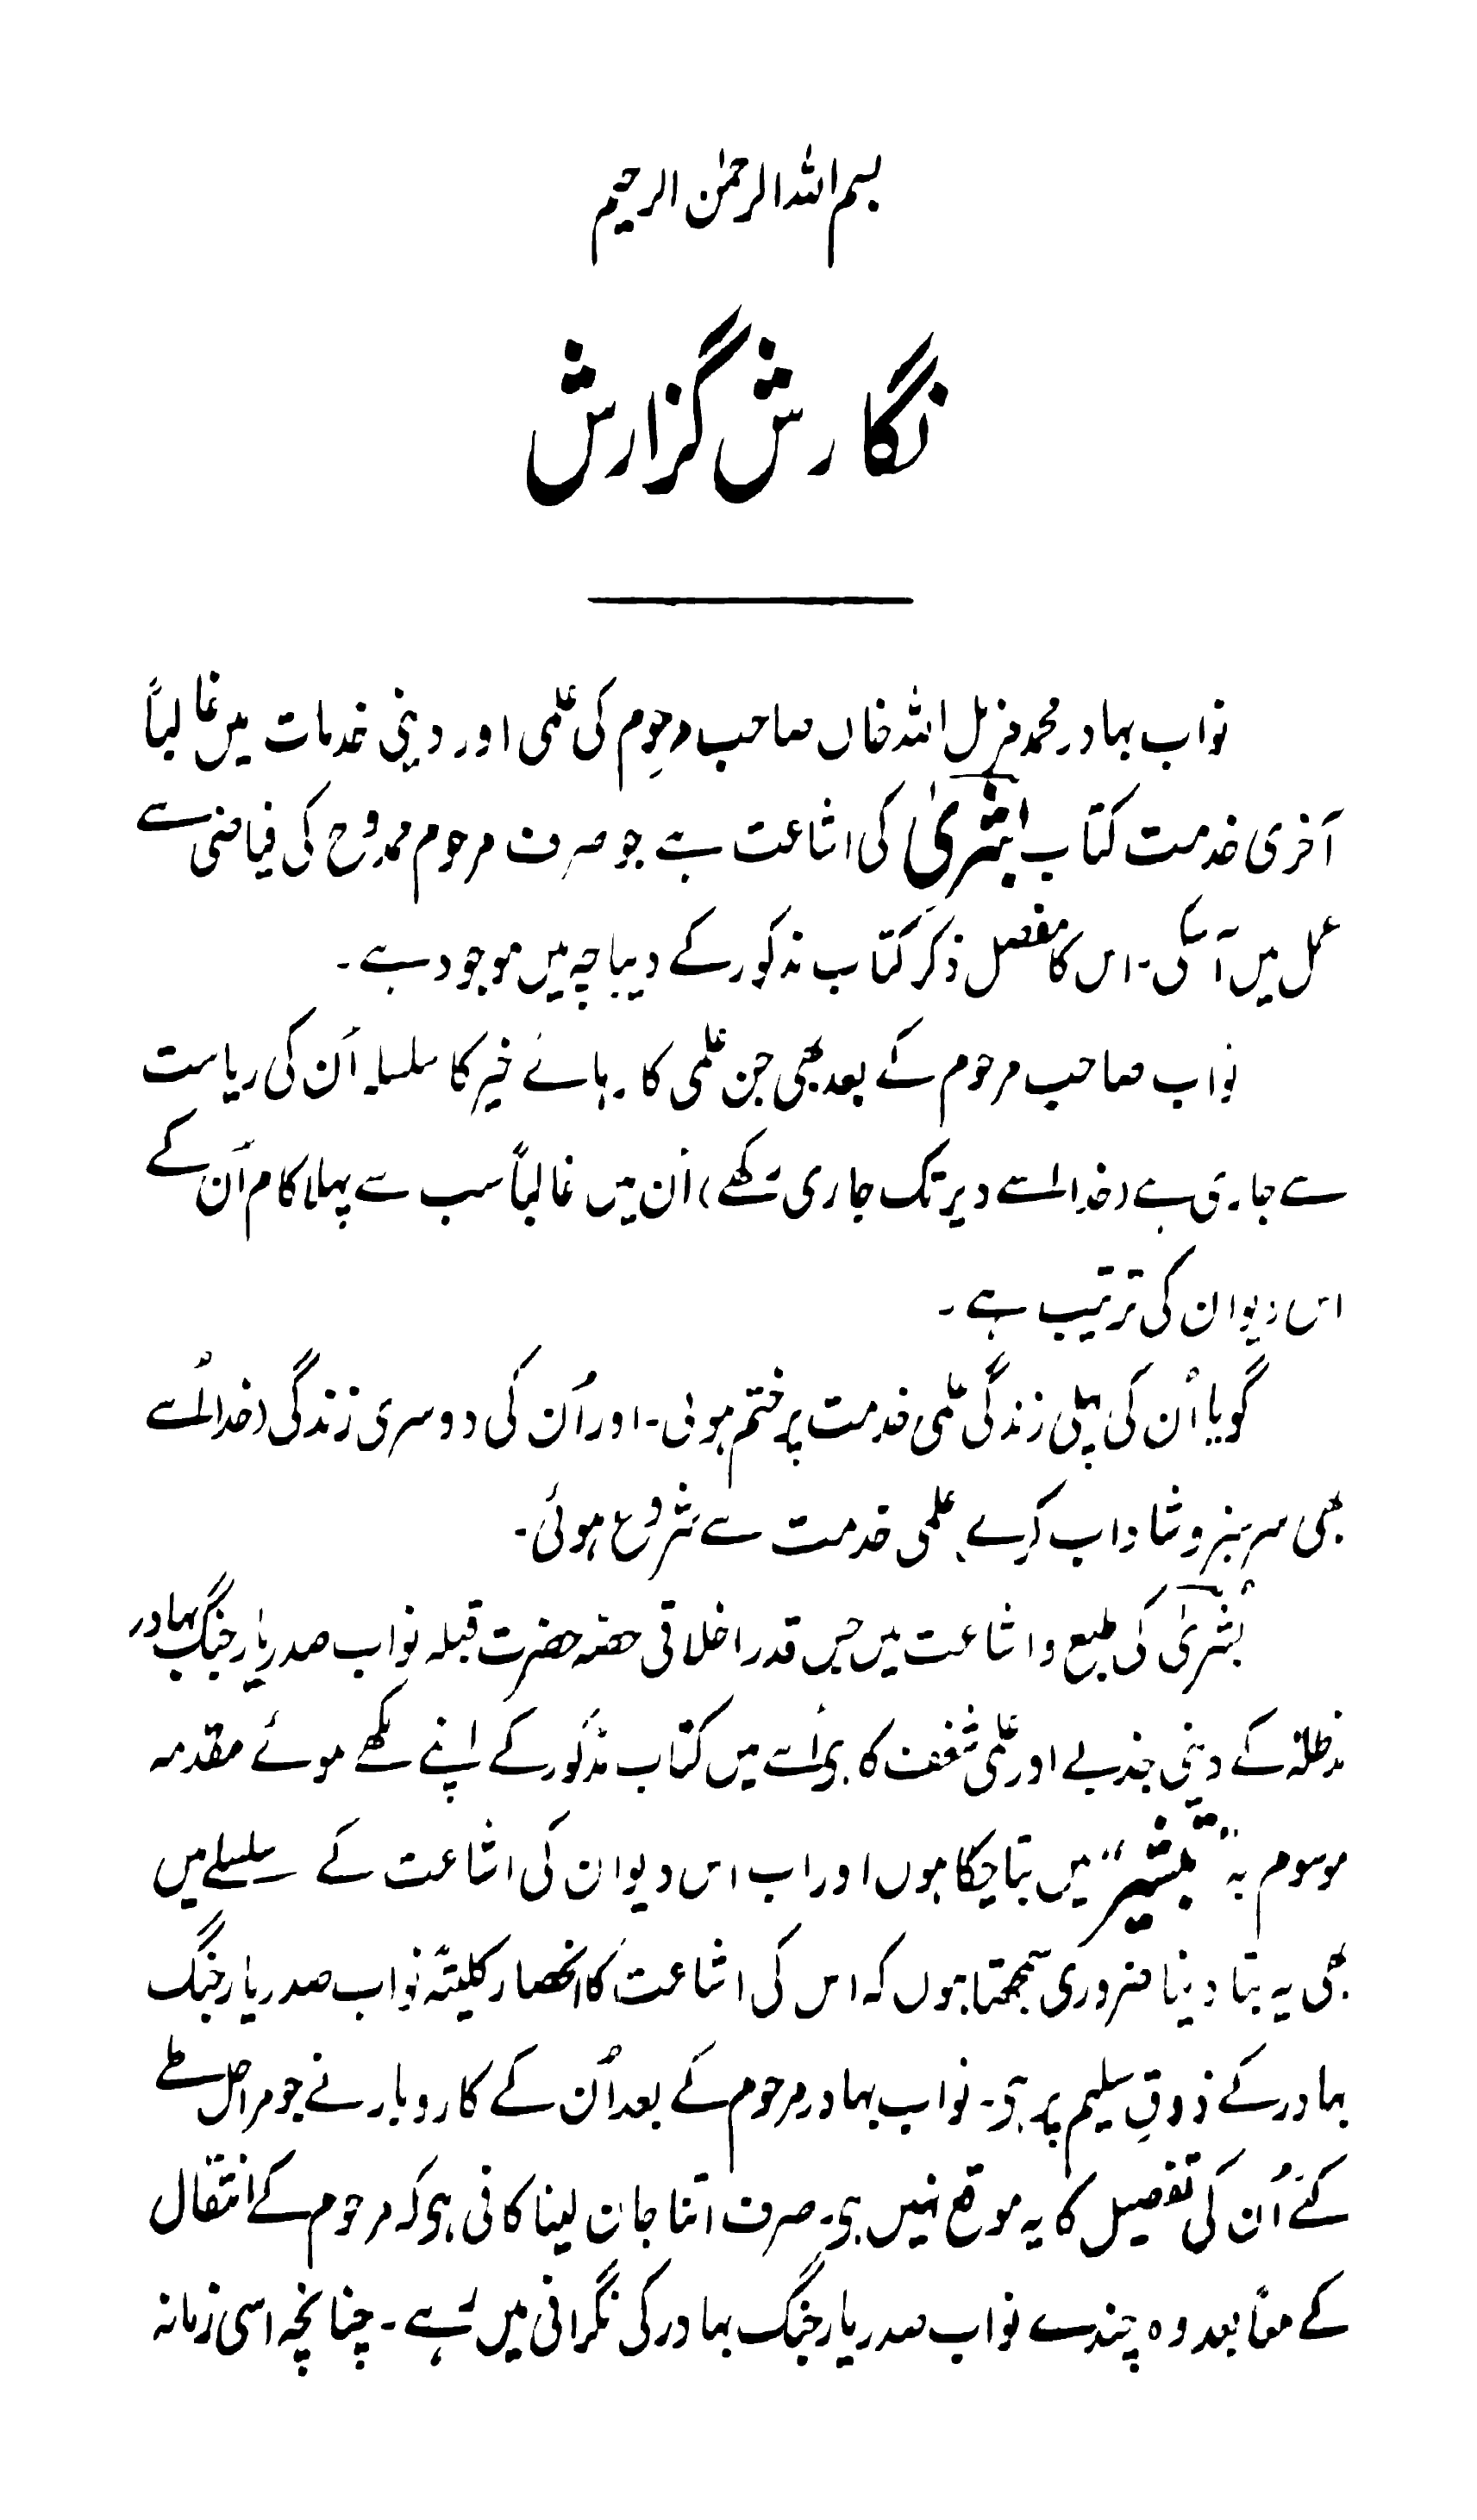 بسم اللہ الرحمٰن الرحیم
نگارش گزارش
نواب بہادر محمد مزمل اللہ خاں صاحب مرحوم کی علمی اور دینی خدمات میں غالباً
آخری خدمت کتاب بُشریٰ کی اشاعت ہے جو صرف مرحوم ممدوح کی فیاضی سے
عمل میں آسکی۔ اس کا مفصل ذکر کتاب مذکور کے دیباچہ میں موجود ہے۔
نواب صاحب مرحوم کے بعد بھی جن علمی کارہائے خیر کا سلسلہ اُن کی ریاست
سے جاری ہے (خدا اسے دیر تک جاری رکھے) اُن میں غالباً سب سے پہلا کام اُن کے
اس دیوان کی ترتیب ہے۔
گویا اُن کی پہلی زندگی علمی خدمت پر ختم ہوئی۔ اور اُن کی دوسری زندگی (خدا اُسے
بھی سرسبز و شاداب کرے) علمی خدمت سے شروع ہوئی۔
بُشریٰ کی طبع و اشاعت میں جس قدر اخلاقی حصہ حضرت قبلہ نواب صدر یار جنگ بہادر
مدظلہٗ کے دینی جذبے اور علمی شغف کا ہی اُسے میں کتاب مذکور کے اپنے لکھے ہوئے مقدمہ
موسوم بہ "مبشر" میں بتا چکا ہوں اور اب اس دیوان کی اشاعت کے سلسلے میں
بھی یہ بتا دینا ضروری سمجھتا ہوں کہ اس کی اشاعت کا انحصار کلیتہً نواب صدر یار جنگ
بہادر کے ذوقِ سلیم پر ہی۔ نواب بہادر مرحوم کے بعد اُن کے کاروبار نے جو مراحل طے
کئے اُن کی تفصیل کا یہ موقع نہیں ہی۔ صرف اتنا جان لینا کافی ہی کہ مرحوم کے انتقال
کے معاً بعد وہ چندے نواب صدر یار جنگ بہادر کی نگرانی میں رہے۔ چنانچہ اسی زمانہ